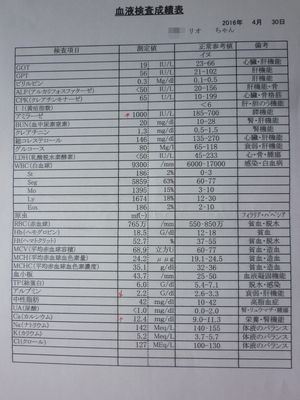 血液検査成績表
2016年 4月 30日
リオ ちゃん
検査項目 測定値 正常参考値 イヌ 備考
GOT 19 IU/L 23-66 心臓・肝機能
GPT 56 IU/L 21-102 肝機能
ビリルビン 0.3 Mg/L 0.1-0.5 肝機能
ALP(アルカリフォスファターゼ) <50 IU/L 20-156 肝機能・骨
CPK(クレアチンキナーゼ) 65 U/L 10-199 心臓・骨格筋
I I(黄疸指数) <6 肝・胆のう機能
アミラーゼ 1000 IU/L 185-700 膵機能
BUN(血中尿素窒素) 20 mg/L 10-28 腎・肝機能
クレアチニン 1.3 mg/L 0.5-1.5 腎機能
総コレステロール 146 mg/L 111-265 肝機能
グルコース 80 Mg/L 65-118 衰弱・肝機能
LDH(乳酸脱水素酵素) <50 IU/L 45-233 心・骨・腫瘍
WBC(白血球) 9300 /mm 6000-17000 感染・白血病
St 186 2% 0-3
Seg 5859 63% 60-77
Mo 1395 15% 3-10
Ly 1674 18% 12-30
Eos 186 2% 2-10
原虫 mf(-) フィラリア・バベシア
RBC(赤血球) 765万 /mm 550-850万 貧血・脱水
Hb(ヘモグロビン) 18.5 G/dl 12-18 貧血
Ht(ヘマトクリット) 52.7 % 37-55 貧血・脱水
MCV(平均赤血球容積) 68.9 立方μ 60-77 貧血・造血
MCH(平均赤血球血色素量) 24.2 μμg 19.1-24.5 貧血・造血
MCHC(平均赤血球血色素濃度) 35.1 g/dl 32-36 貧血・造血
血小板 43.7 /mm 25-50 血液凝固機能
TP(総蛋白) 6.0 G/dl 5.4-7.1 脱水・感染
アルブミン 2.2 G/dl 2.6-3.3 衰弱・肝機能
中性脂肪 42 mg/dl 10-42 高脂血症
UA(尿酸) <1.0 mg/dl 0.0-2.0 腎・リュウマチ・腫瘍
Ca(カルシウム) 12.4 mg/dl 9.0-11.3 栄養・腎機能
Na(ナトリウム) 142 Meq/L 140-155 体液のバランス
K(カリウム) 5.2 Meq/L 3.7-5.7 体液のバランス
Cl(クロール) 127 MEq/L 100-130 体液のバランス